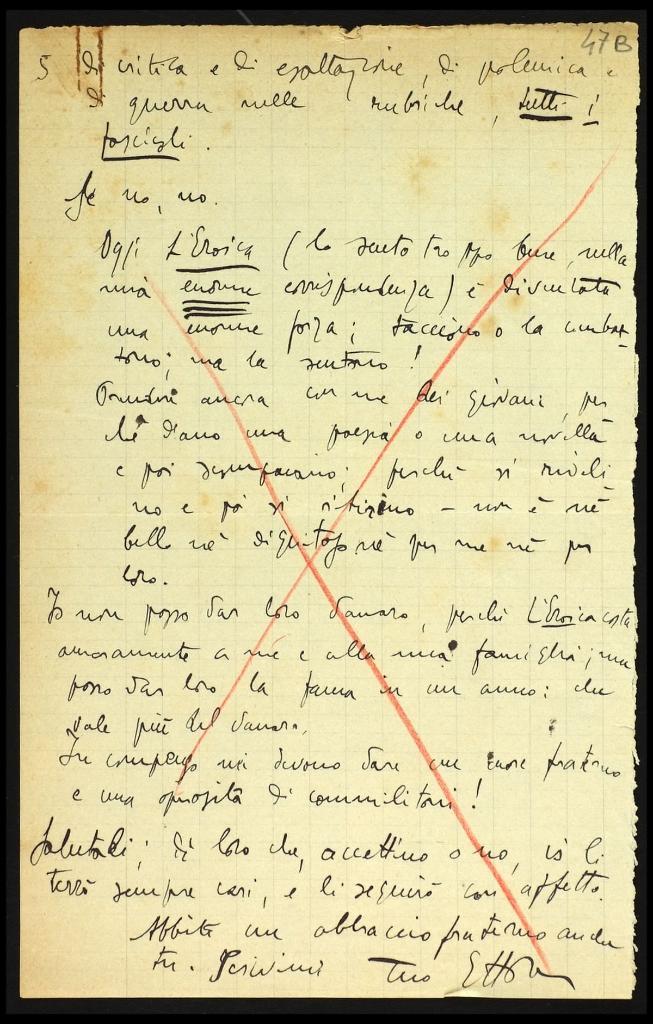 47B
5 di critica e di esaltazione, di polemica e
di guerra nelle rubriche, tutti i
fascicoli.
Se no, no.
Oggi L'Eroica (lo sento troppo bene, nella
mia enorme corrispondenza) è diventata
una enorme forza; tacciono o la combat-
tono; ma la sentono!
ancora con me dei giovani, per
chè diano una poesia o una novella
e poi scompaiano; perchè si riveli
no e poi si ritirino – non è nè
bello nè dignitoso nè per me nè per
loro.
Io non posso dar loro danaro, perchè L'Eroica costa
amaramente a me e alla mia famiglia; ma
posso dar loro la fama in un anno: che
vale più del danaro.
In compenso mi devono dare un cuore fraterno
e una operosità di commilitoni!
Salutali; dì loro che, accettino o no, io li
terrò sempre cari, e li seguirò con affetto.
Abbiti un abbraccio fraterno anche
tu. Scrivimi Tuo Ettore